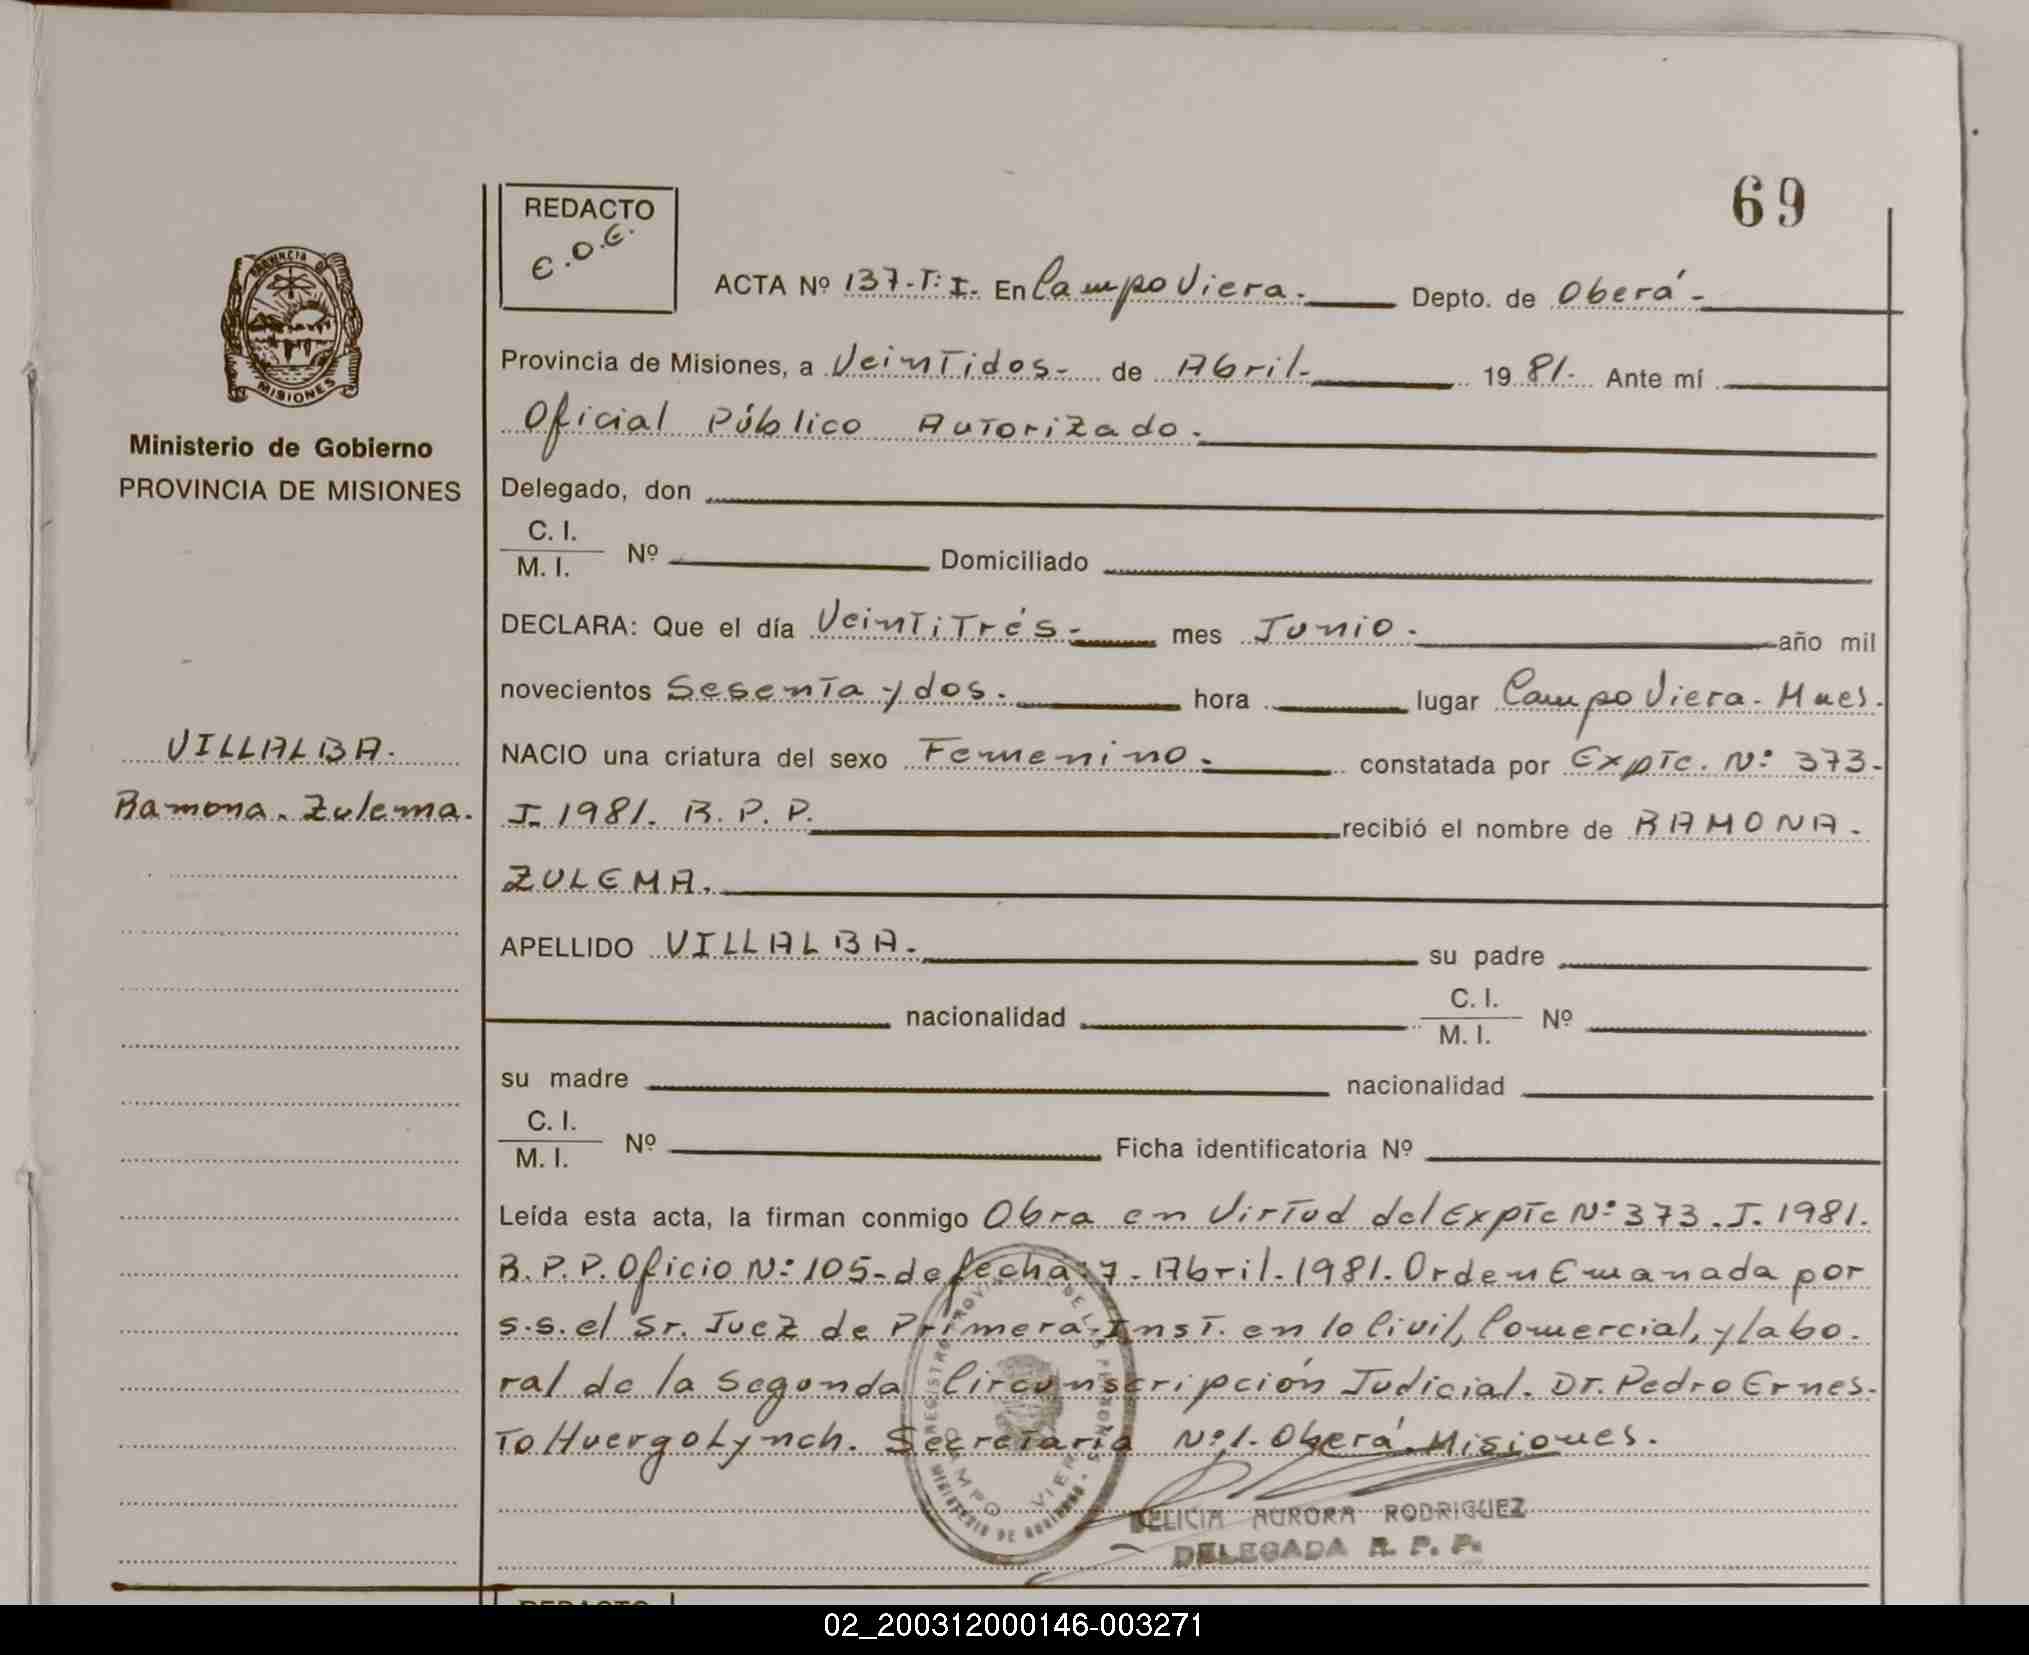 69
REDACTO
E.O.E.
ACTA Nº 137-T:I. En Campo Viera. Depto. de Oberá-
Provincia de Misiones, a Veintidos- de Abril- 1981- Ante mí
Oficial Público Autorizado.
Delegado, don
C. I.
M. I. Nº Domiciliado
DECLARA: Que el día Veintitrés- mes Junio. año mil
novecientos Sesenta y dos. hora lugar Campo Viera. Mnes.
NACIO una criatura del sexo Femenino. constatada por Expte. Nº 373-
I- 1981. R. P. P. recibió el nombre de RAMONA.
ZULEMA.
APELLIDO VILLALBA. su padre
nacionalidad C. I.
M. I. Nº
su madre nacionalidad
C. I.
M. I. Nº Ficha identificatoria Nº
Leída esta acta, la firman conmigo Obra en Virtud del Expte Nº 373. I. 1981.
R.P.P. Oficio Nº 105- de fecha 7- Abril. 1981. Orden Emanada por
s.s. el Sr. Juez de Primera Inst. en lo Civil, Comercial, y labo.
ral de la Segunda Circunscripción Judicial. Dr. Pedro Ernes-
to Huergo Lynch. Secretaria Nº 1. Oberá. Misiones.
REGISTRO PROVINCIAL DE LAS PERSONAS
MINISTERIO DE GOBIERNO
CAMPO VIERA
DELICIA AURORA RODRIGUEZ
DELEGADA R. P. P.
PROVINCIA DE
MISIONES
Ministerio de Gobierno
PROVINCIA DE MISIONES
VILLALBA.
Ramona. Zulema.
REDACTO
02_200312000146-003271